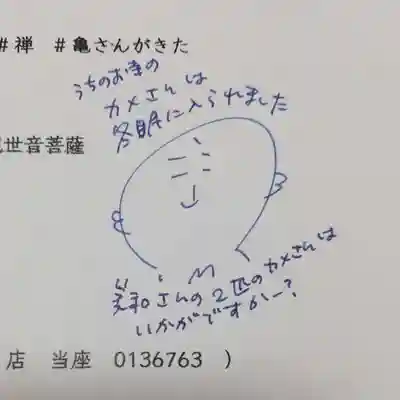 #禅 #亀さんがきた
うちのお寺の
カメさんは
冬眠に入られました
世音菩薩
さんの2匹のカメさんは
いかがですかー?
店 当座 0136763 )